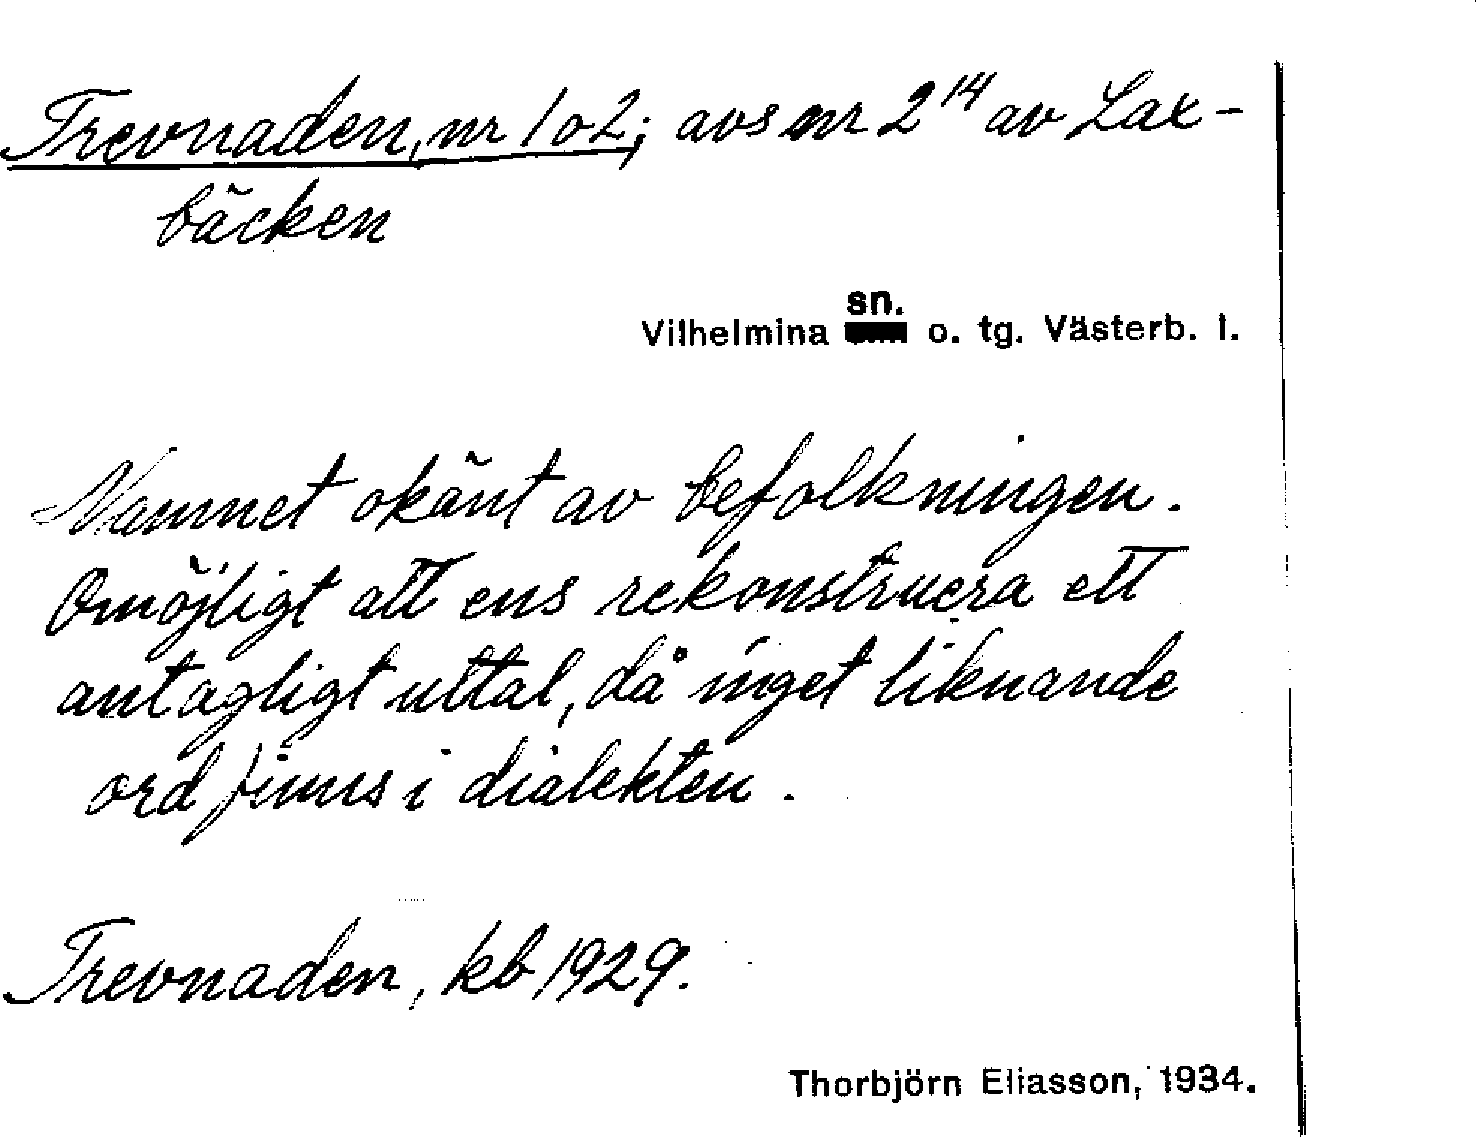 Trevnaden, nr 1 o 2; avs nr 2¹⁴ av Lax-
bäcken
sn.
Vilhelmina o. tg. Västerb. l.
Namnet okänt av befolkningen.
Omöjligt att ens rekonstruera ett
antagligt uttal, då inget liknande
ord finns i dialekten.
Trevnaden, kb 1929.
Thorbjörn Eliasson, 1934.